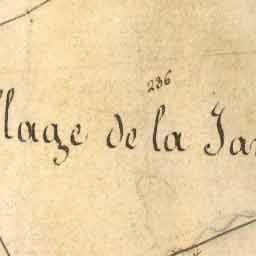 236
llage de la Jar